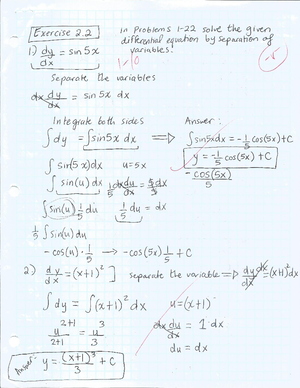 Exercise 2.2
In Problems 1-22 solve the given
differential equation by separation of
variables.
1) dy/dx = sin 5x
Separate the variables
dx dy/dx = sin 5x dx
Integrate both sides
Answer:
∫dy = ∫sin 5x dx ⟹ ∫sin5xdx = -1/5 cos(5x)+C
∫sin(5x)dx u=5x
y = -1/5 cos(5x) + C
∫sin(u)dx du = 5dx
-cos(5x)/5
∫sin(u) 1/5 du 1/5 du = dx
1/5 ∫sin(u)du
-cos(u)·1/5 → -cos(5x)1/5 + C
2) dy/dx = (x+1)² separate the variable ⟹ dy/dx dx = (x+1)²dx
∫dy = ∫(x+1)² dx u=(x+1)
u²⁺¹/2+1 = u³/3 dx du/dx = 1·dx
du = dx
Answer: y = (x+1)³/3 + C